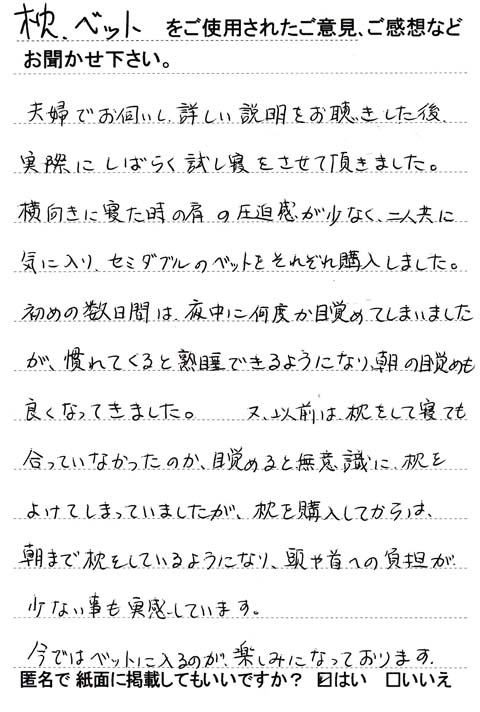 枕、ベット をご使用されたご意見、ご感想など
お聞かせ下さい。
夫婦でお伺いし、詳しい説明をお聴きした後、
実際にしばらく試し寝をさせて頂きました。
横向きに寝た時の肩の圧迫感が少なく、二人共に
気に入り、セミダブルのベットをそれぞれ購入しました。
初めの数日間は、夜中に何度か目覚めてしまいました
が、慣れてくると熟睡できるようになり、朝の目覚めも
良くなってきました。 又、以前は、枕をして寝ても
合っていなかったのか、目覚めると無意識に、枕を
よけてしまっていましたが、枕を購入してからは、
朝まで枕をしているようになり、頭や首への負担が
少ない事も実感しています。
今ではベットに入るのが、楽しみになっております。
匿名で 紙面に掲載してもいいですか？ ☑はい □いいえ